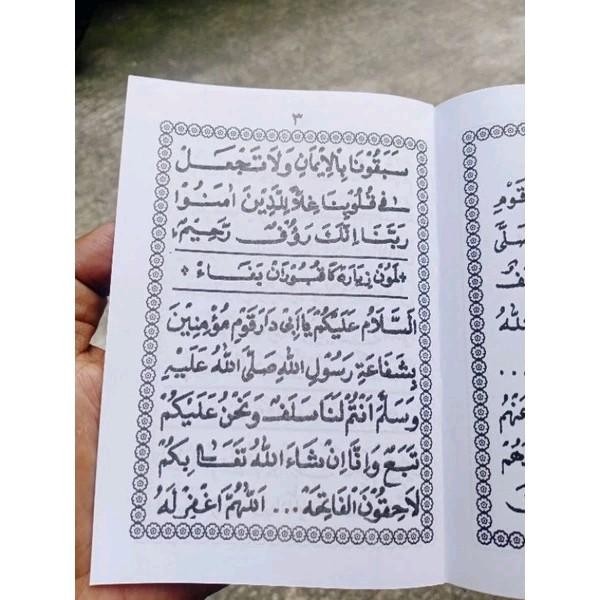 ٣
سَبَقُوْنَا بِالْاِيْمَانِ وَلَا تَجْعَلْ
فِى قُلُوْبِنَا غِلًّا لِلَّذِيْنَ اٰمَنُوْا
رَبَّنَا اِنَّكَ رَؤُفٌ رَحِيْمٌ
*لَمُوْن زِيَارَة كَا قُبُوْرَان يَئِاءَ*
اَلسَّلَامُ عَلَيْكُمْ يَا اَبِى دَارَ قَوْمٍ مُؤْمِنِيْنَ
بِشَفَاعَةِ رَسُوْلِ اللهِ صَلَّى اللهُ عَلَيْهِ
وَسَلَّمَ اَنْتُمْ لَنَا سَلَفٌ وَنَحْنُ عَلَيْكُمْ
تَبَعٌ وَاِنَّا اِنْ شَاءَ اللهُ تَعَالٰى بِكُمْ
لَاحِقُوْنَ الْفَاتِحَةْ ... اَللّٰهُمَّ اغْفِرْ لَهُ
قَوْمٍ
صَلَّى